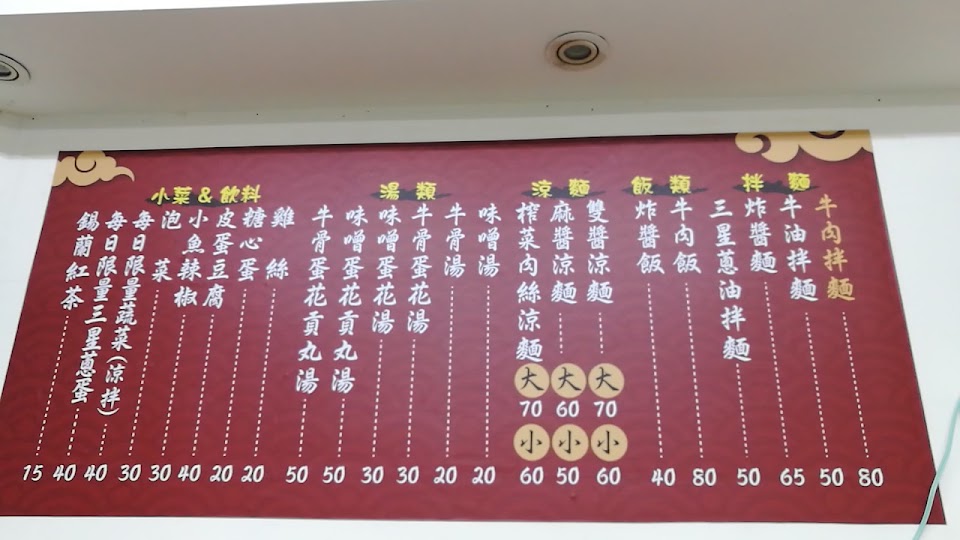 拌麵
牛肉拌麵 80
牛油拌麵 50
炸醬麵 65
三星蔥油拌麵 50
飯類
牛肉飯 80
炸醬飯 40
涼麵
雙醬涼麵 大 70 小 60
麻醬涼麵 大 60 小 50
榨菜肉絲涼麵 大 70 小 60
湯類
味噌湯 20
牛骨湯 20
牛骨蛋花湯 30
味噌蛋花湯 30
味噌蛋花貢丸湯 50
牛骨蛋花貢丸湯 50
小菜&飲料
雞絲 20
糖心蛋 20
皮蛋豆腐 40
小魚辣椒 30
泡菜 30
每日限量蔬菜(涼拌) 40
每日限量三星蔥蛋 40
錫蘭紅茶 15